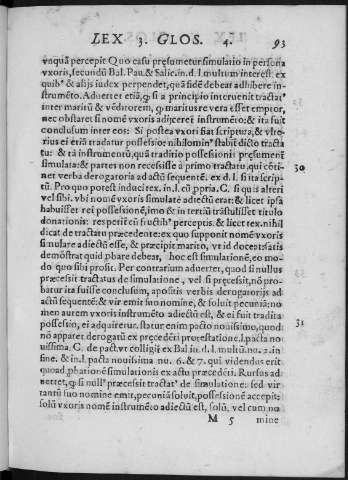 LEX 3. GLOS. 4. 93
vnquã percepit Quo casu pręsumetur simulatio in persona
vxoris, secundũ Bal. Pau. & Salic. in. d. l. multum interest. ex
quib⁹ & alijs iudex perpendet, quã fidẽ debear adhibere in-
strumẽto. Aduerter etiã, ꝙ si a principio interuenit tractat⁹
inter maritũ & vẽditorem, ꝙ maritus re vera esset emptor,
nec obstaret si nomẽ vxoris adijceret instrumẽto: & ita fuit
conclusum inter eos: Si postea vxori fiat scriptura, & vlte-
rius ei etiã tradatur possessio: nihilomin⁹ stabit dicto tracta
tui: & tã instrumentũ quã traditio possessionis pręsument
simulata: & partes non recessisse a primo tractatu, qui cõti- 30
net verba derogatoria ad actũ sequentẽ. ex d. l. si ita scrip-
tũ. Pro quo potest induci tex. in. l. cũ ppria. C. si quis alteri
vel sibi. vbi nomẽ vxoris simulatè adiectũ erat: & licet ipsa
habuisset rei possessionẽ, imo & in tertiũ trãstulisset titulo
donationis: resperit cũ fructib⁹ perceptis. & licet tex. nihil
dicat de tractatu pręcedente: ex quo supponit nomẽ vxoris
simulare adiectũ esse, & pręcipit marito, vt id docẽt: satis
demõstrat quid pbare debear, hoc est simulationẽ, eo mo-
do quo sibi prosit. Per contrarium aduerter, quod si nullus
pręcessit tractatus de simulatione, vel si pręcessit, nõ pro-
batur ita fuisse conclusum, apositis verbis derogatorijs ad
actũ sequentẽ: & vir emit suo nomine, & soluit pecuniã: no
men autem vxoris instrumẽto adiectũ est, & ei fuit tradita
possessio, ei adquiretur. statur enim pacto nouissimo, quod 31
nõ apparet derogatũ ex pręcedẽti protestatione. l. pacta no
uissima. C. de pact. vt colligit ex Bal. in. d. l. multũ. nu. 2. in
fine. & in. l. pacta nouissima nu. 6. & 7. qui videndus erit
quoad pbationẽ simulationis ex actu pręcedẽti. Rursus ad
uertet, ꝙ si null⁹ pręcessit tractat⁹ de simulatione: sed vir
tantũ suo nomine emit, pecuniã soluit, possessionẽ accepit:
solũ vxoris nomẽ instrumẽto adiectũ est, solũ, vel cum no
M 5 mine